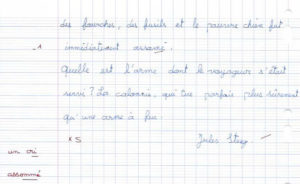 des fourches, des fusils et le pauvre chien fut
-1 immédiatement assomé.
Quelle est l'arme dont le voyageur s'était
servi ? La calomnie, qui tue parfois plus sûrement
qu'une arme à feu.
x 5 Jules Steeg
un cri
assommé